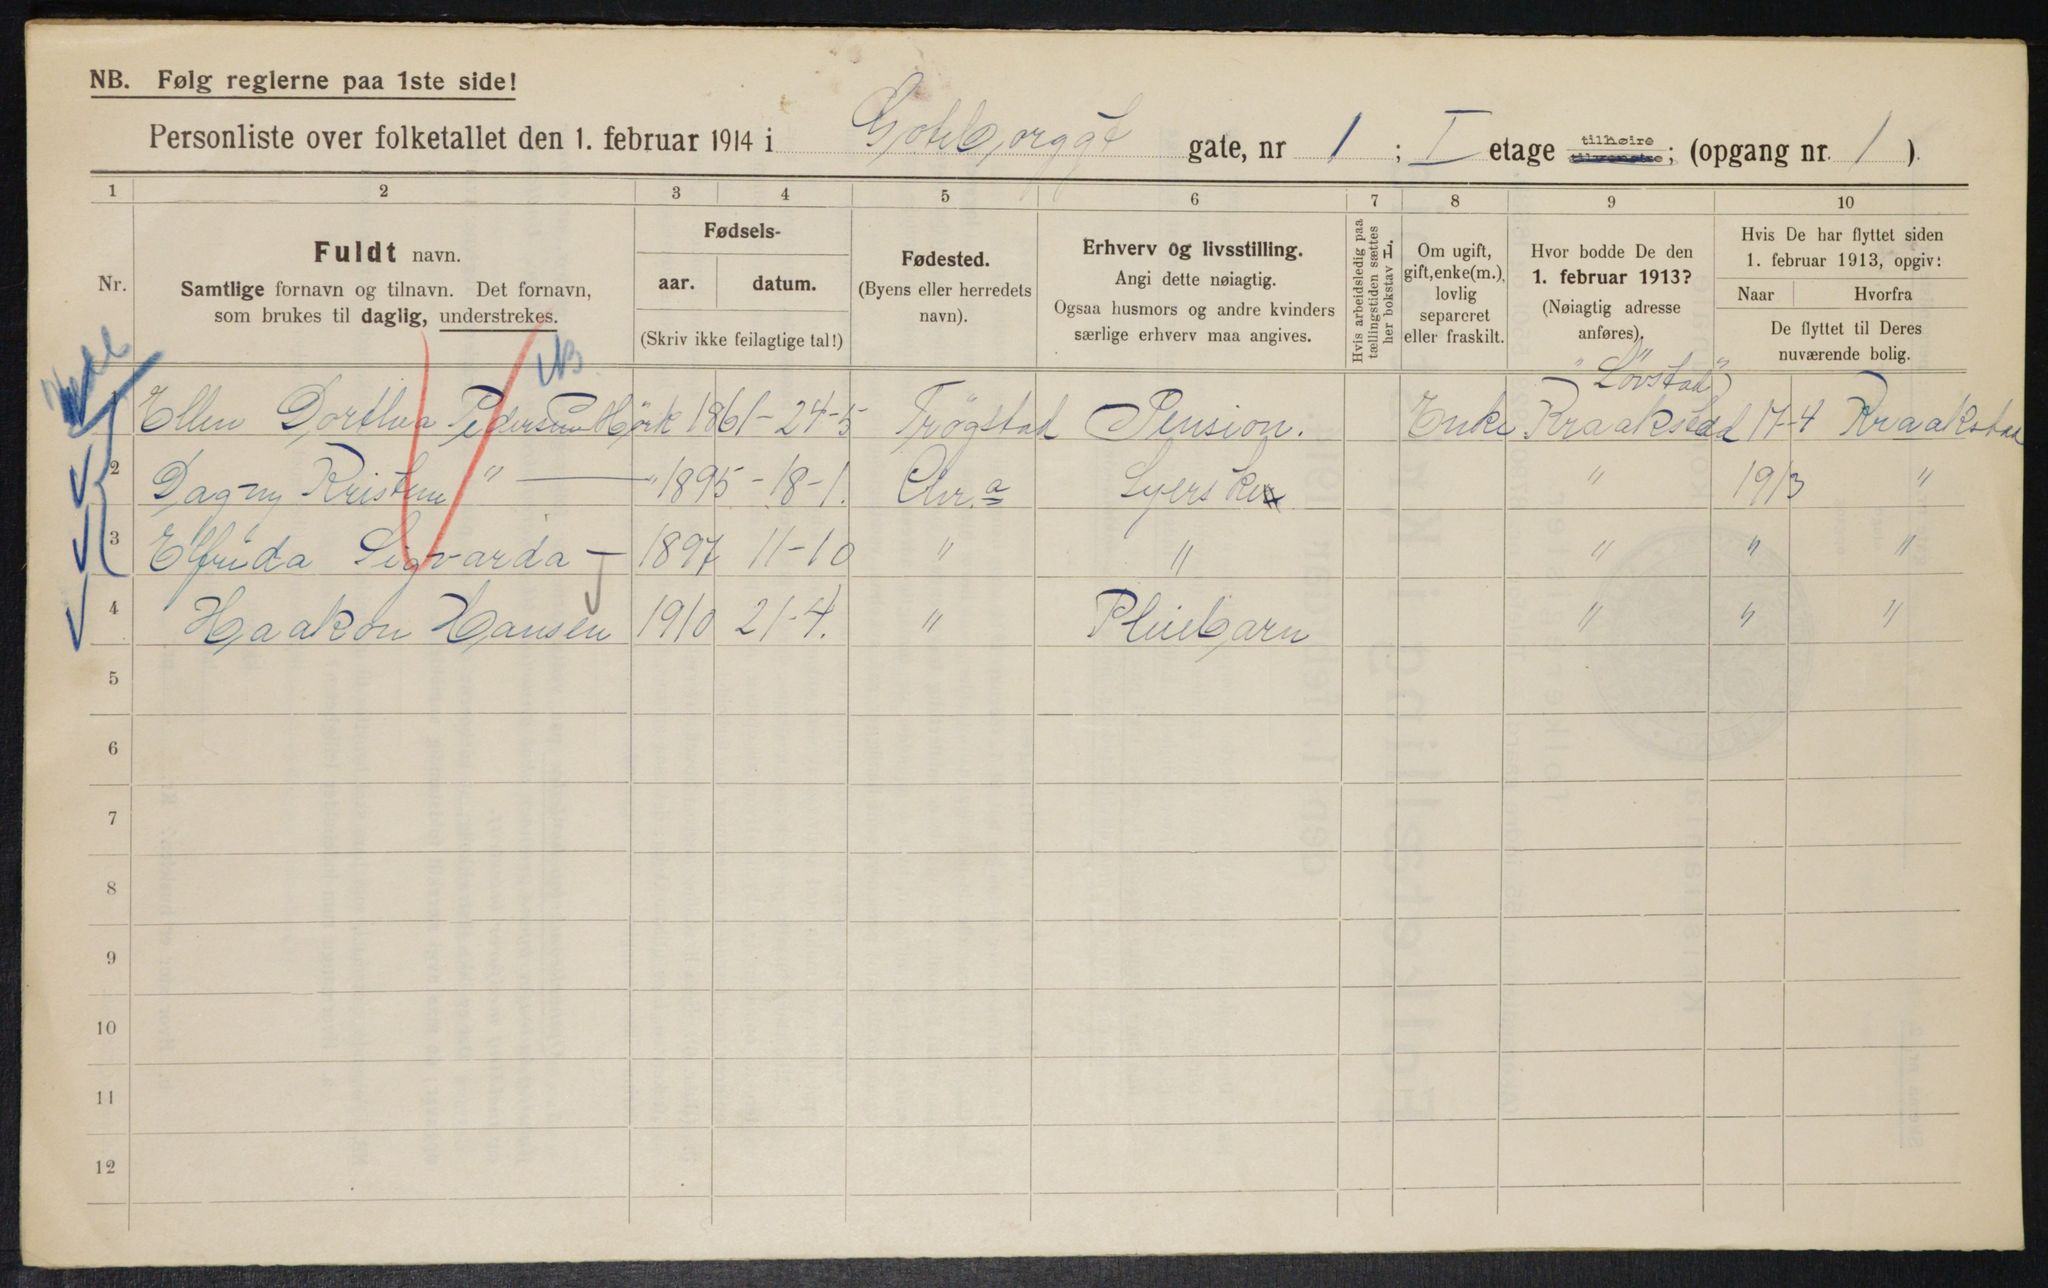 NB. Følg reglerne paa 1ste side!
Personliste over folketallet den 1. februar 1914 i Goteborggt gate, nr 1 ; I etage tilhøire ; (opgang nr. 1 ).
1 2 3 4 5 6 7 8 9 10
Nr.
Fuldt navn.
Samtlige fornavn og tilnavn. Det fornavn,
som brukes til daglig, understrekes.
Fødsels-
aar. datum.
(Skriv ikke feilagtige tal!)
Fødested.
(Byens eller herredets
navn).
Erhverv og livsstilling.
Angi dette nøiagtig.
Ogsaa husmors og andre kvinders
særlige erhverv maa angives.
Hvis arbeidsledig paa
tællingstiden sættes
her bokstav L.
Om ugift,
gift, enke(m.),
lovlig
separeret
eller fraskilt.
Hvor bodde De den
1. februar 1913?
(Nøiagtig adresse
anføres).
Hvis De har flyttet siden
1. februar 1913, opgiv:
Naar Hvorfra
De flyttet til Deres
nuværende bolig.
NB.
"Lövstad"
1 Ellen Dorthea Pedersen Hörk 1861 - 24-5 Trögstad Pension. Enke Kraakstad 17-4 Kraakstad
2 Dagny Kristine " — " 1895 - 18-1. Chr.a Syerske " 1913 "
3 Elfrida Sigvarda — 1897 11-10 " " " " "
4 Haakon Hansen 1910 21-4. " Pleiebarn " " "
5
6
7
8
9
10
11
12